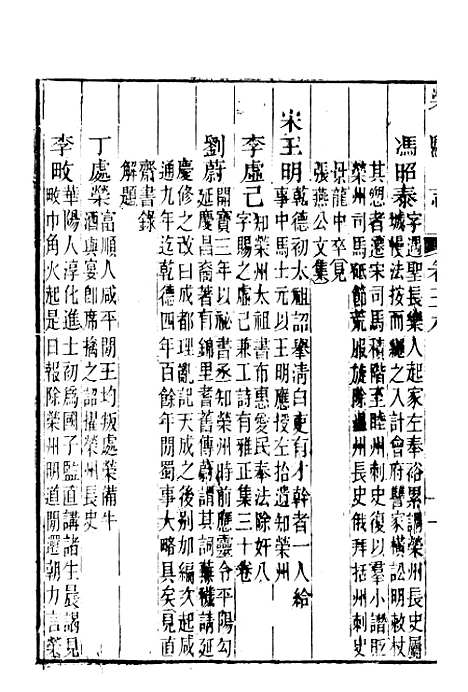 榮縣志 卷三十八
馮昭泰字遇聖長樂人起家左奉裕累調榮州長史屬
城慢法按而繩之入計會府讐家橫訟明敕杖
其愬者遷宋司馬積階至睦州刺史復以羣小譖貶
榮州司馬砥節荒服旋除溫州長史俄拜括州刺史
景龍中卒見
張燕公文集
宋王明乾德初太祖詔舉清白吏有才幹者一人給
事中馬士元以王明應授左拾遺知榮州
李虛己知榮州太祖書布惠愛民奉法除奸八
字賜之虛己兼工詩有雅正集三十卷
劉蔚開寶三年以祕書丞知榮州時前應靈令平陽勾
延慶昌裔著有錦里耆舊傳蔚謂其詞蕪穢請延
慶修之改曰成都理亂記天成之後别加編次起咸
通九年迄乾德四年百餘年閒蜀事大略具矣見直
齋書錄
解題
丁處榮富順人咸平閒王均叛處榮備牛
酒與宴卽席擒之詔擢榮州長史
李畋華陽人淳化進士初爲國子監直講諸生晨謁見
畋巾角火起是日報除榮州明道閒還朝力言榮